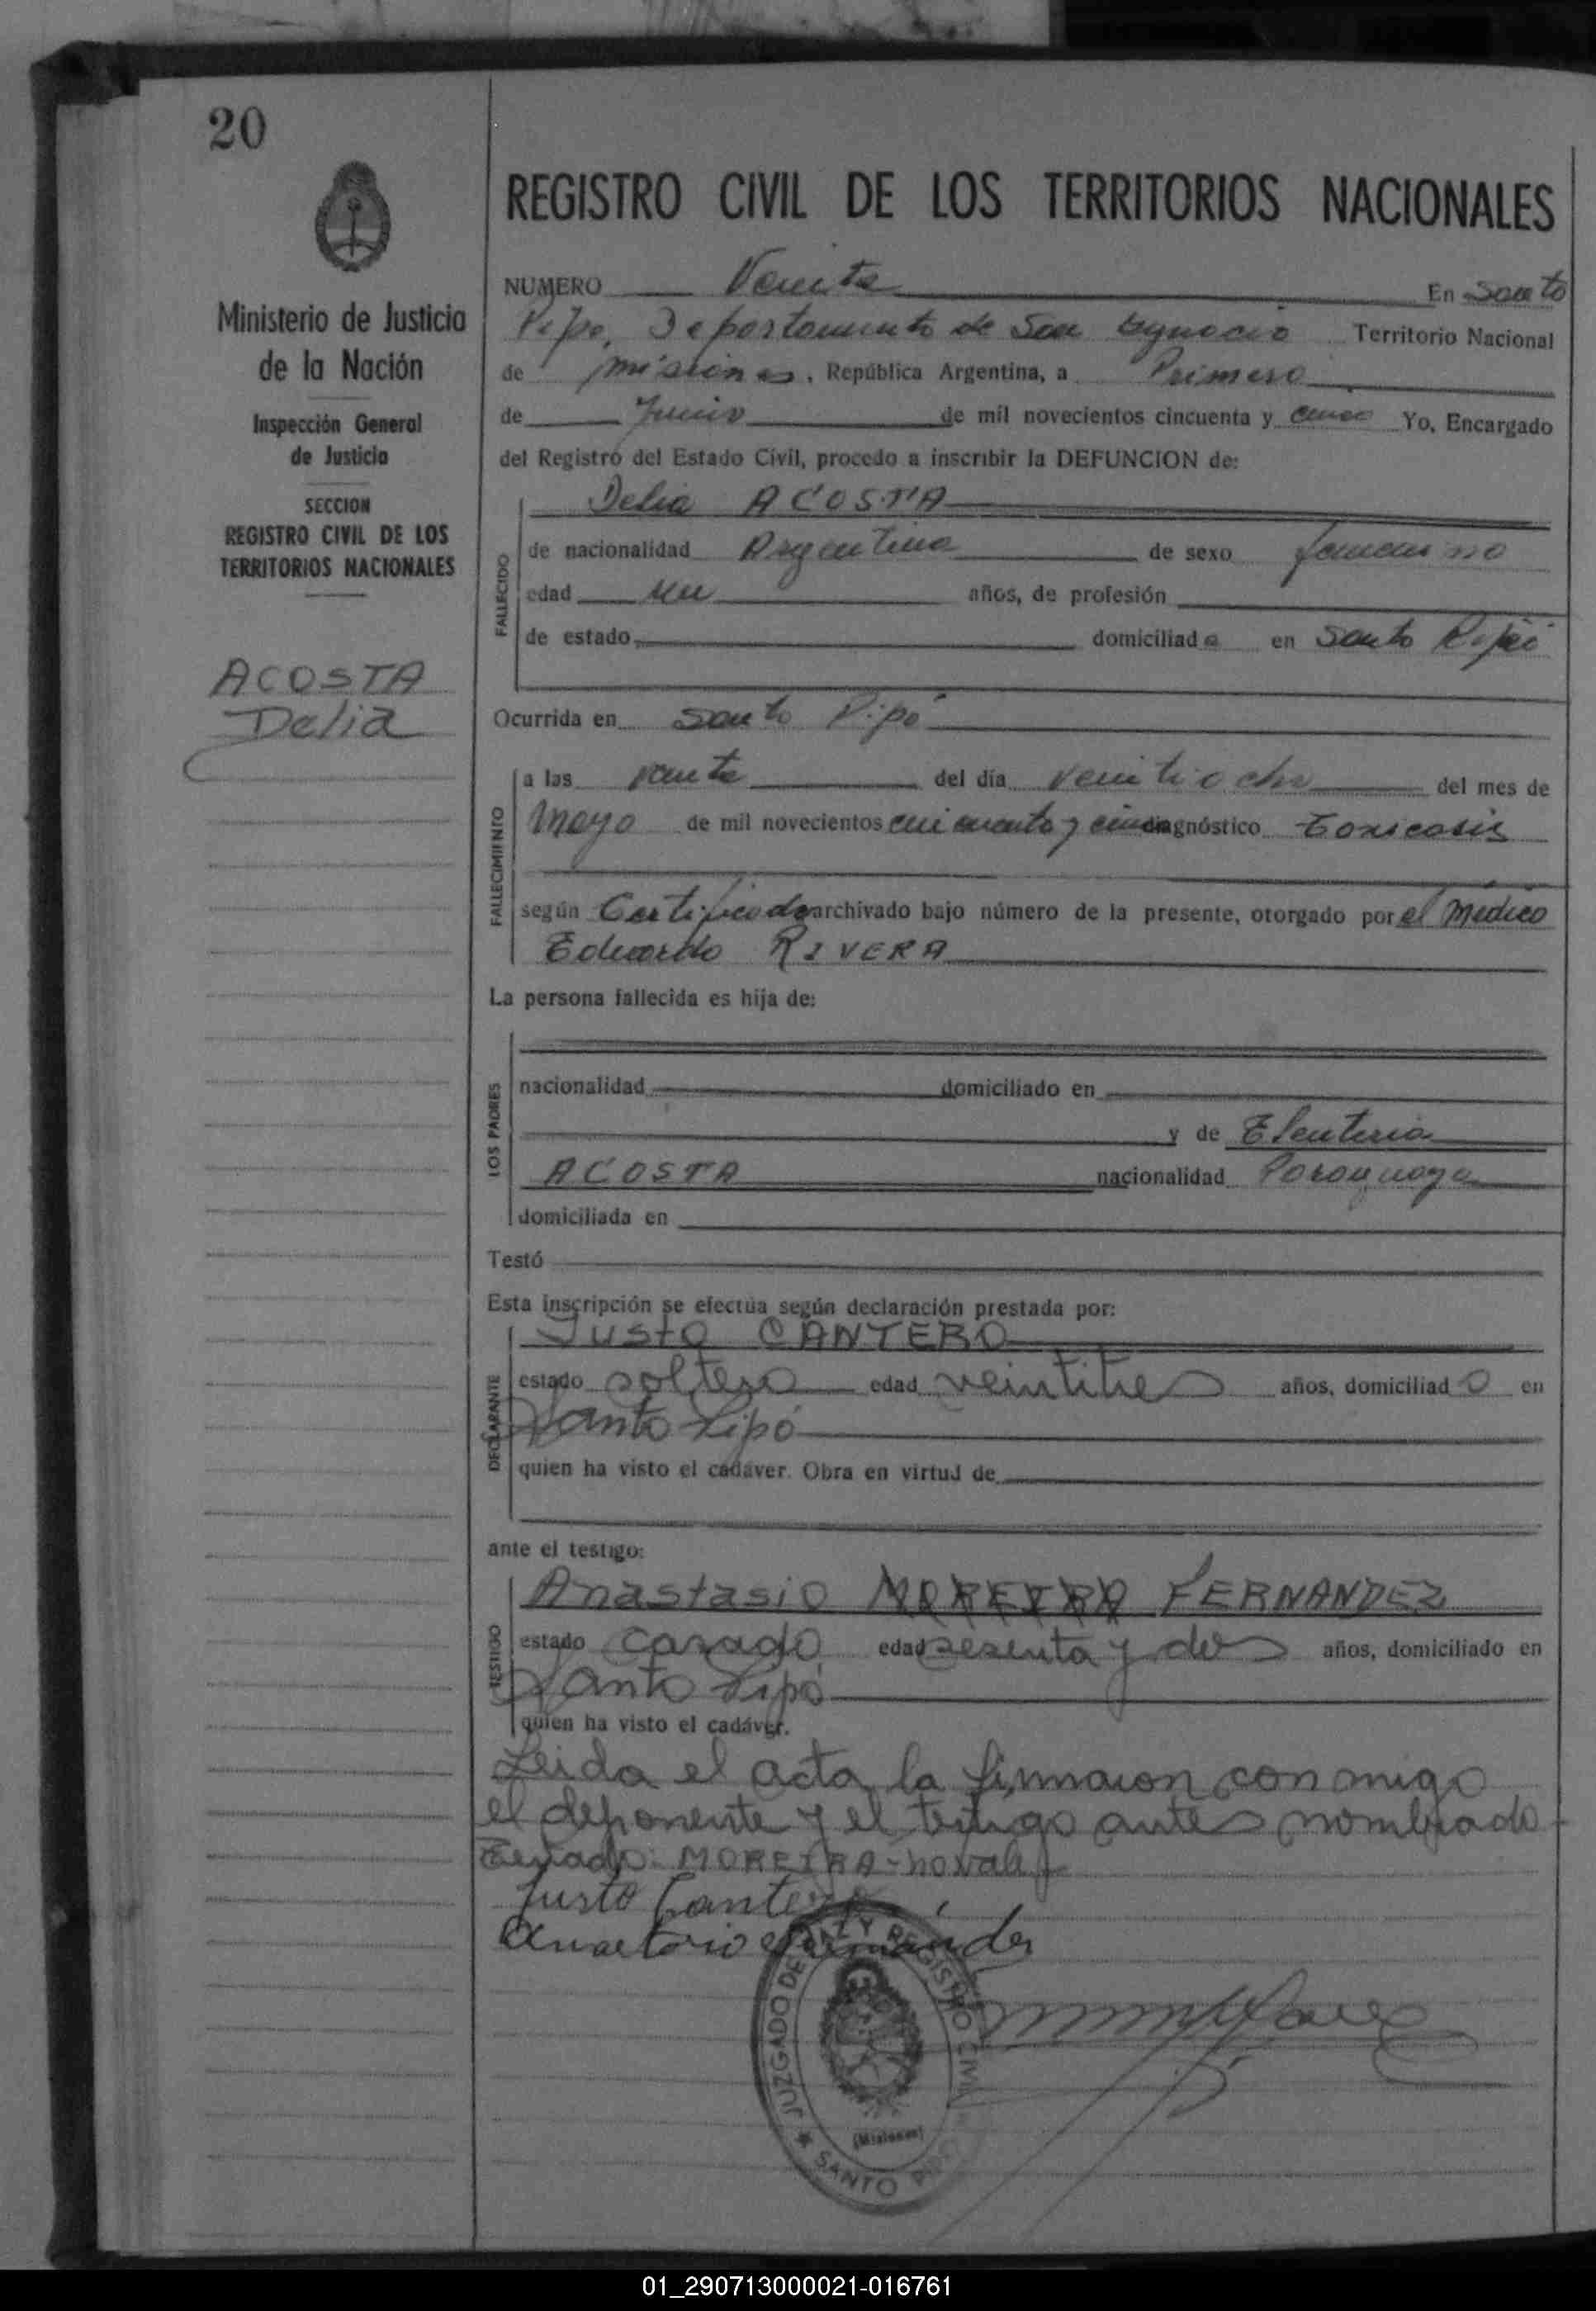 20
REGISTRO CIVIL DE LOS TERRITORIOS NACIONALES
Ministerio de Justicia
de la Nación
Inspección General
de Justicia
SECCION
REGISTRO CIVIL DE LOS
TERRITORIOS NACIONALES
ACOSTA
Delia
NUMERO Veinte En Santo
Pipo, Departamento de San Ygnacio Territorio Nacional
de Misiones, República Argentina, a Primero
de Junio de mil novecientos cincuenta y cinco Yo, Encargado
del Registro del Estado Civil, procedo a inscribir la DEFUNCION de:
Delia ACOSTA
FALLECIDO
de nacionalidad Argentina de sexo femenino
edad un años, de profesión
de estado domiciliada en Santo Pipó
Ocurrida en Santo Pipó
FALLECIMIENTO
a las veinte del día veintiocho del mes de
Mayo de mil novecientos cincuenta y cinco diagnóstico Toxicosis
según Certificado archivado bajo número de la presente, otorgado por el Médico
Eduardo RIVERA
La persona fallecida es hija de:
LOS PADRES
nacionalidad domiciliado en
y de Eleuteria
ACOSTA nacionalidad Paraguaya
domiciliada en
Testó
Esta inscripción se efectúa según declaración prestada por:
DECLARANTE
Justo CANTERO
estado soltero edad veintitres años, domiciliado en
Santo Pipó
quien ha visto el cadáver. Obra en virtud de
ante el testigo:
TESTIGO
Anastasio MOREIRA FERNANDEZ
estado casado edad sesenta y dos años, domiciliado en
Santo Pipó
quien ha visto el cadáver.
Leida el acta la firmaron conmigo
el deponente y el testigo antes nombrado
Testado: MOREIRA - no vale
Justo Cantero
JUZGADO DE PAZ Y REGISTRO CIVIL
(Misiones)
SANTO PIPO
01_290713000021-016761